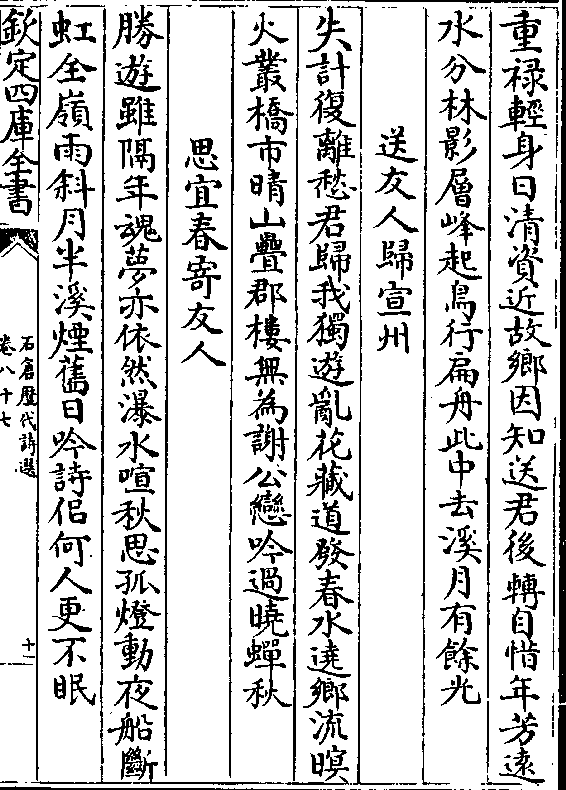 重祿輕身日清資近故鄉因知送君後轉自惜年芳遠
水分林影層峰起鳥行扁舟此中去溪月有餘光
送友人歸宣州
失計復離愁君歸我獨遊亂花藏道發春水遶鄉流暝
火叢橋市晴山疊郡樓無為謝公戀吟過曉蟬秋
思宜春寄友人
勝遊雖隔年魂夢亦依然瀑水喧秋思孤燈動夜船斷
虹全嶺雨斜月半溪煙舊日吟詩侶何人更不眠
欽定四庫全書
石倉歷代詩選
卷八十七
十一